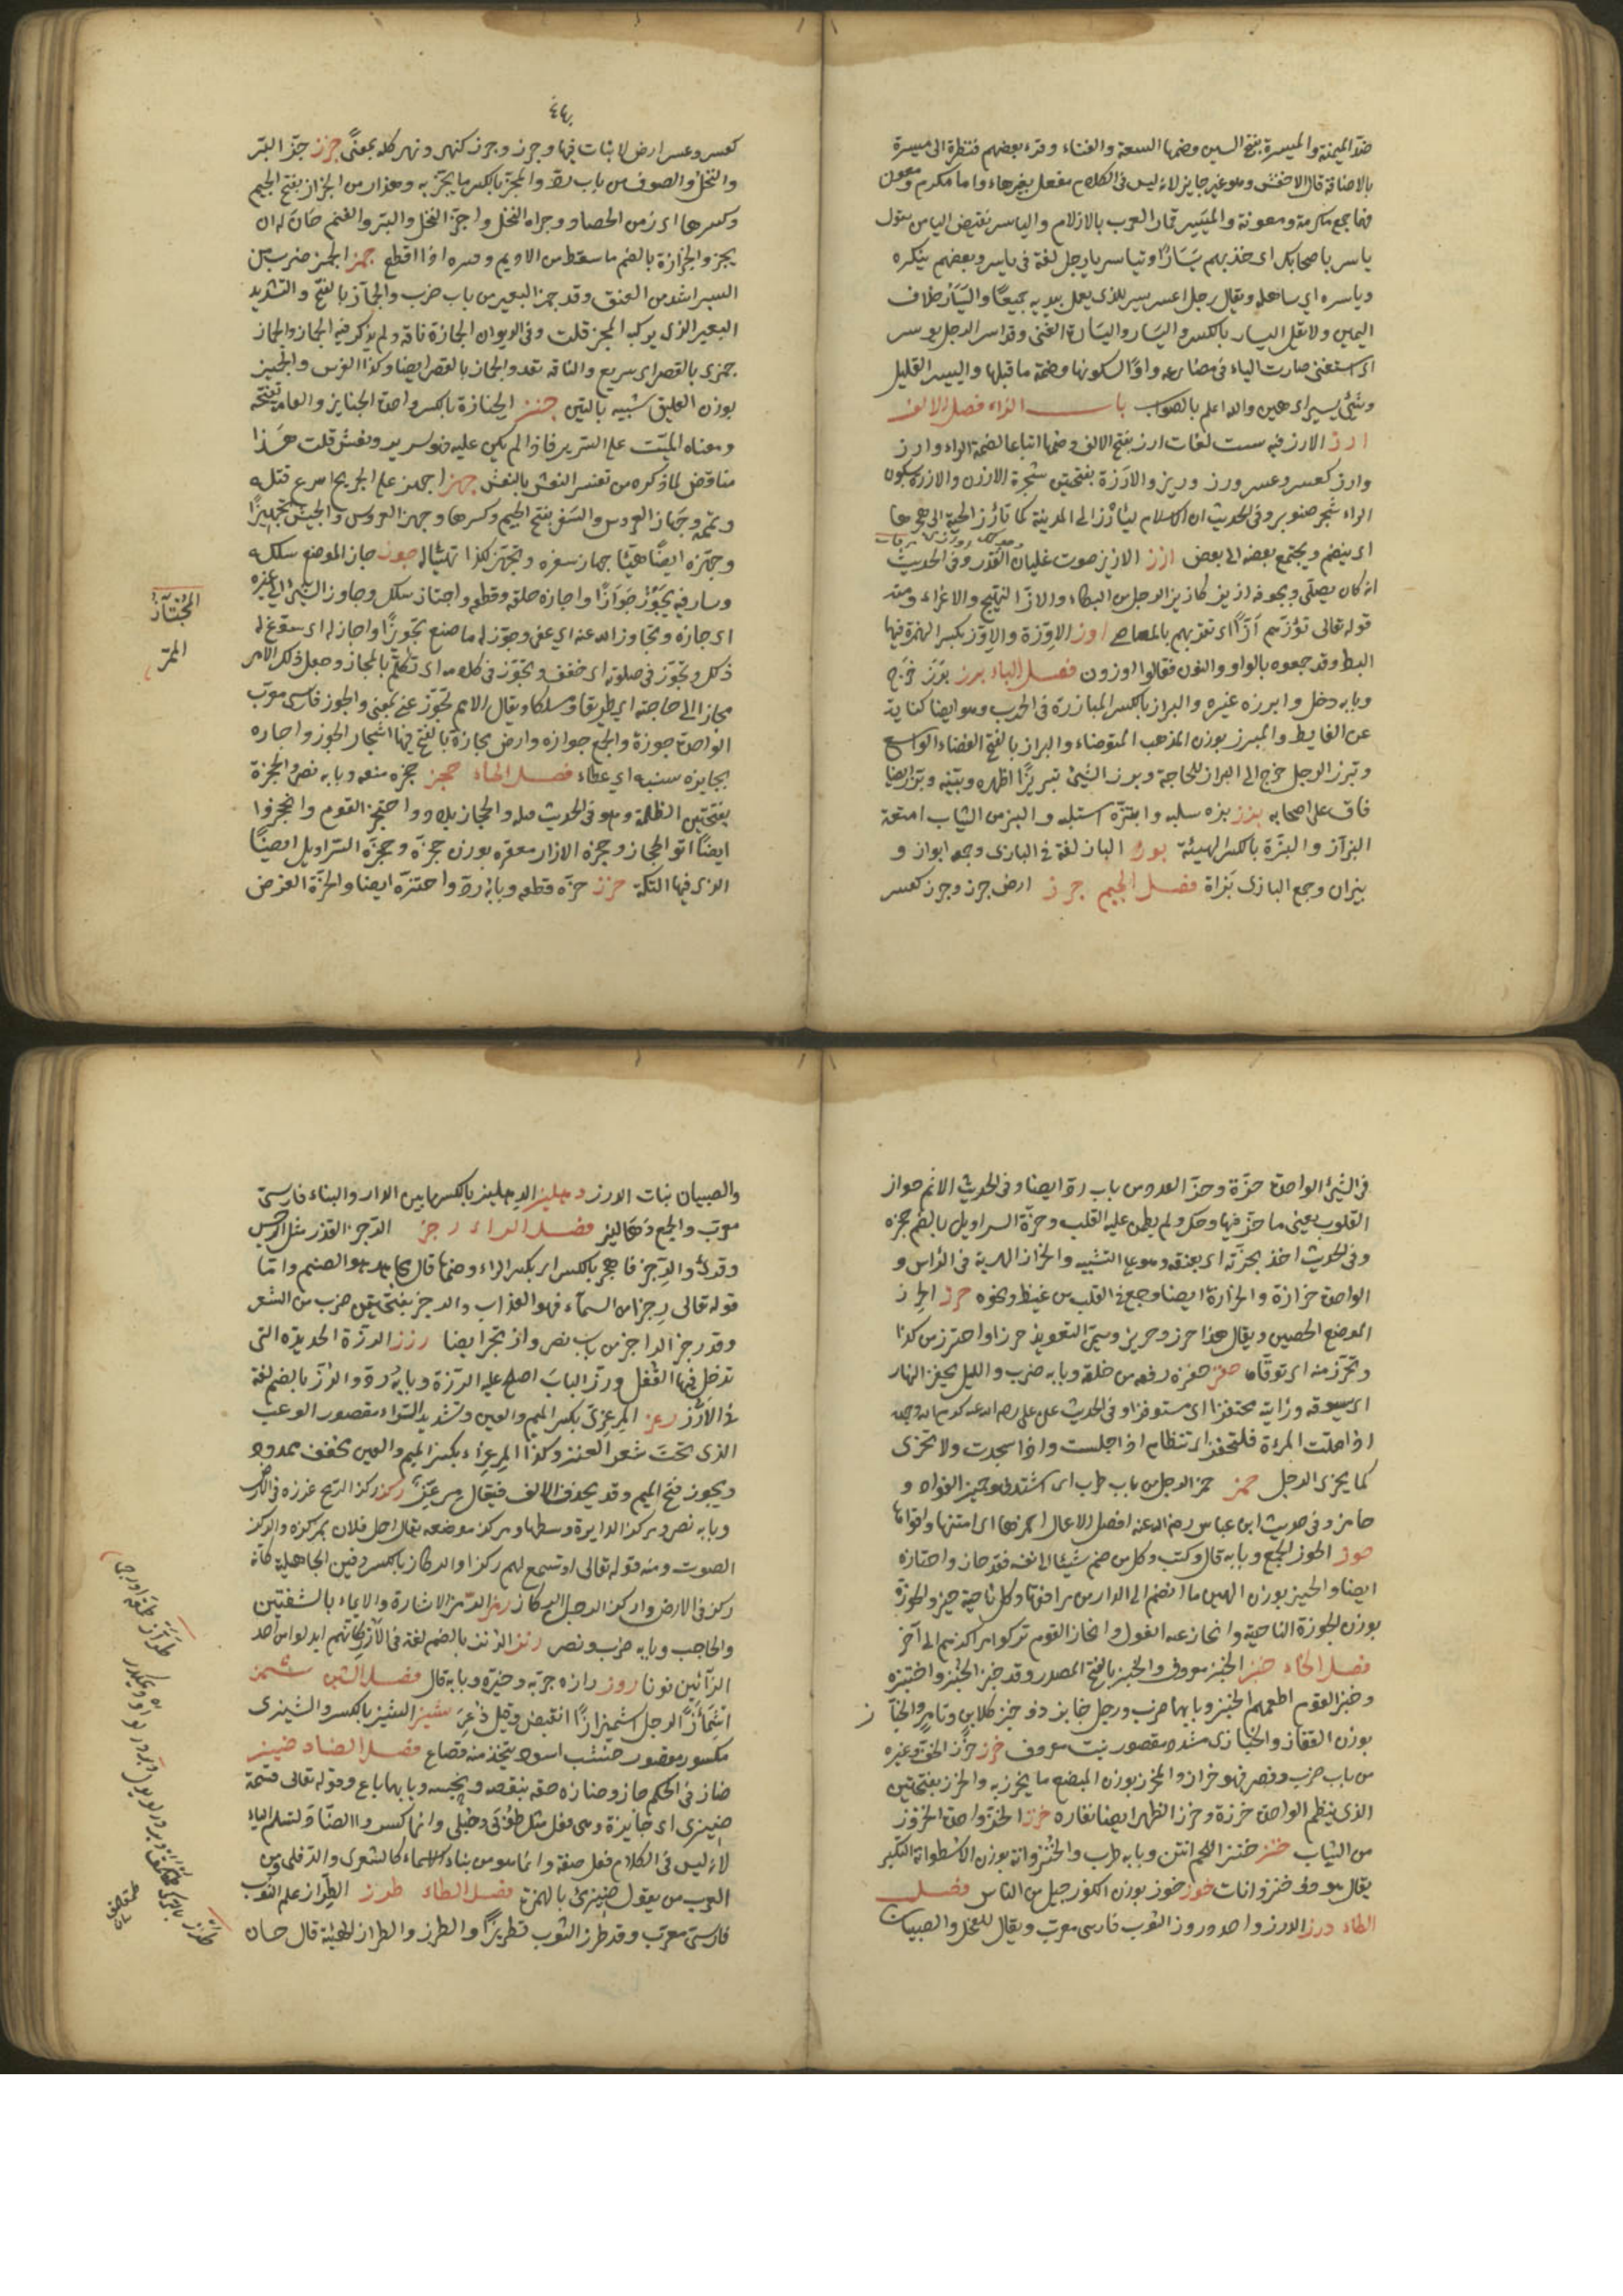 ضد الميمنة والميسرة بفتح السين وضمها السعة والغناء وقرء بعضهم فنظرة الى ميسرة
بالاضافة قال الاخفش وهو غير جايز لانه ليس فى الكلام مفعل بغيرهاء واما مكرم ومعون
فهما جمع مكرمة ومعونة والميسر قمار العرب بالازلام والياسر نقيض اليامن يقول
ياسر باصحابك اى خذ بهم يسارا وتياسر يا رجل لغة فى ياسر وبعضهم ينكره
وياسره اى ساهله ويقال رجل اعسر يسر للذى يعمل بيديه جميعا واليسار خلاف
اليمين ولا تقل اليسار بالكسر واليسار واليسارة الغنى وقد ايسر الرجل يوسر
اى استغنى صارت الياء فى مضارعه واوا لسكونها وضمة ما قبلها واليسير القليل
وشئ يسير اى هين والله اعلم بالصواب باب الزاء فصل الالف
ارز الارز فيه ست لغات ارز بفتح الالف وضمها اتباعا لضمة الراء وارز
وارز كعسر وعسر ورز ورنز والارزة بفتحتين شجرة الارزن والارزة بسكون
الراء شجر صنوبر وفى الحديث ان الاسلام ليأرز الى المدينة كما تأرز الحية الى جحرها
اى ينضم ويجتمع بعضه الى بعض ازز الازيز صوت غليان القدر وفى الحديث
انه كان يصلى وبجوفه ازيز كازيز المرجل من البكاء والاز التهييج والاغراء ومنه
قوله تعالى تؤزهم ازا اى تغريهم بالمعاصى اوز الاوزة والاوز بكسر الهمزة فيهما
البط وقد جمعوه بالواو والنون فقالوا اوزون فصل الباء برز برز خرج
وبابه دخل وابرزه غيره والبراز بالكسر المبارزة فى الحرب وهو ايضا كناية
عن الغايط والمبرز بوزن المذهب المتوضاء والبراز بالفتح الفضاء الواسع
وتبرز الرجل خرج الى البراز للحاجة وبرز الشئ تبريزا اظهره وبينه وبرز ايضا
فاق على اصحابه بزز بزه سلبه وابتزه استلبه والبز من الثياب امتعة
البزاز والبزة بالكسر الهيئة بوز الباز لغة فى البازى وجمعه ابواز و
بيزان وجمع البازى بزاة فصل الجيم جرز ارض جرز وجرز كعسر
كعسر وعسر ارض لا نبات فيها وجرز وجرز كنهر ونهر كله بمعنى جزز جز البر
والنخل والصوف من باب رد والمجز بالكسر ما يجز به وهذا زمن الجزاز بفتح الجيم
وكسرها اى زمن الحصاد وجراه النخل واجز النخل والبر والغنم حان له ان
يجز والجزازة بالضم ما سقط من الاديم وغيره اذا اقطع جمز الجمز ضرب من
السير اشد من العنق وقد جمز البعير من باب ضرب والجماز بالفتح والتشديد
البعير الذى يركبه المجمز قلت وفى الديوان الجمازة ناقة ولم يذكر فيه الجماز والحمار
جمزى بالقصر اى سريع والناقة تعدو الجمزى بالقصر ايضا وكذا الفرس والجميز
بوزن العليق شبيه بالتين جنز الجنازة بالكسر واحدة الجنايز والعامة تفتحه
ومعناه الميت على السرير فاذا لم يكن عليه فهو سرير ونعش قلت هذا
مناقض لما ذكره من تفسير النعش بالنعش جهز اجهز على الجريح اسرع قتله
وتممه وجهاز العروس والسفر بفتح الجيم وكسرها وجهز العروس والجيش تجهيزا
وجهزه ايضا هيئا جهاز سفره وتجهز لكذا تهيئا له جوز جاز الموضع سلكه
وسار فيه يجوز جوازا واجازه خلفه وقطعه واجتاز سلك وجاوز الشئ الى غيره
اى جازه وتجاوز الله عنه اى عفى وجوز له ما صنع تجويزا واجاز له اى سوغ له
ذلك وتجوز فى صلوته اى خفف وتجوز فى كلامه اى تكلم بالمجاز وجعل ذلك الامر
مجازا الى حاجته اى طريقا ومسلكا ويقال اللهم تجوز عنى بمعنى والجوز فارسى معرب
الواحدة جوزة والجمع جوازه وارض مجازة بالفتح فيها اشجار الجوز واجازه
بجايزه سنيه اى عطاء فصل الحاء حجز حجزه منعه وبابه نصر والحجزة
بفتحتين الظلمة وهو فى الحديث قيله والحجاز بلاد واحتجز القوم وانحجزوا
ايضا اتوا الحجاز وحجزة الازار معقده بوزن حجرة وحجزة السراويل ايضا
الذى فيها التكة حزز حزه قطعه وبابه رد واحتزه ايضا والحزة الفرض
المجتاز
الممر
فى الشئ الواحدة حزة وحز العود من باب رد ايضا وفى الحديث الاثم حواز
القلوب يعنى ما حز فيها وحك ولم يطمئن عليه القلب وحزة السراويل بالضم حجزه
وفى الحديث اخذ بحزته اى بعنقه وهو على التشبيه والحزاز الهبرية فى الرأس و
الواحدة حزازة والحزازة ايضا وجع فى القلب من غيظ ونحوه حرز الحرز
الموضع الحصين ويقال هذا حرز وحريز وسمى التعويذ حرزا واحترز من كذا
وتحرز منه اى توقاه حفز حفزه دفعه من خلفه وبابه ضرب والليل يحفز النهار
اى يسوقه ورأيته محتفزا اى مستوفزا وفى الحديث عن على رضى الله عنه كرم الله وجهه
اذا صلت المرءة فلتحتفز اى تتضام اذا جلست واذا سجدت ولا تخوى
كما يخوى الرجل حمز حمز الرجل من باب ظرف اى اشتد فهو حميز الفؤاد و
حامز وفى حديث ابن عباس رضى الله عنه افضل الاعمال احمزها اى امتنها واقواها
حوز الحوز الجمع وبابه قال وكتب وكل من ضم شيئا الى نفسه فقد حازه واحتازه
ايضا والحيز بوزن الهين ما انضم الى الدار من مرافقها وكل ناحية حيز والحوزة
بوزن الجوزة الناحية وانحاز عنه العدول وانحاز القوم تركوا مراكزهم الى آخر
فصل الخاء خبز الخبز معروف والخبز بالفتح المصدر وقد خبز الخبز واختبزه
وخبز القوم اطعمهم الخبز وبابهما ضرب ورجل خابز ذو خبز كلابن وتامر والخباز
بوزن القفاز والخبازى مشدد مقصور نبت معروف خرز خرز الخف وغيره
من باب ضرب ونصر فهو خراز والمخرز بوزن المبضع ما يخرز به والخرز بفتحتين
الذى ينظم الواحدة خرزة وخرز الظهر ايضا فقاره خزز الخز واحد الخزوز
من الثياب خنز خنز اللحم انتن وبابه طرب والخنزوانة بوزن الاسطوانة التكبر
يقال هو ذو خنزوانات خوز خوز بوزن الكوز جيل من الناس فصل
الدال درز الدرز واحد دروز الثوب فارسى معرب ويقال للقمل والصبيان
والصبيان نبات الدرز دهليز الدهليز بالكسر ما بين الدار والبناء فارسى
معرب والجمع دهاليز فصل الراء رجز الرجز القذر مثل الرجس
وقرئ والرجز فاهجر بالكسر اى بكسر الراء وضمها قال مجاهد هو الصنم واما
قوله تعالى رجزا من السماء فهو العذاب والرجز بفتحتين ضرب من الشعر
وقد رجز الراجز من باب نصر وارتجز ايضا رزز الرزة الحديدة التى
تدخل فيها القفل ورز الباب اصلح عليه الرزة وبابه رد والرز بالضم لغة
فى الارز رعز المرعزى بكسر الميم والعين وتشديد الزاء مقصور الوعب
الذى تحت شعر العنز وكذا المرعزاء بكسر الميم والعين مخفف ممدود
ويجوز فتح الميم وقد يحذف الالف فيقال مرعز ركز ركز الرمح غرزه فى الارض
وبابه نصر ومركز الدايرة وسطها ومركز موضعه يقال اخل فلان بمركزه والركز
الصوت ومنه قوله تعالى او تسمع لهم ركزا والركاز بالكسر دفين الجاهلية كأنه
ركز فى الارض واركز الرجل الركاز رمز الرمز الاشارة والايماء بالشفتين
والحاجب وبابه ضرب ونصر رنز الرنز بالضم لغة فى الارز كأنهم ابدلوا من احد
الزائين نونا روز رازه جربه وخبره وبابه قال فصل الشين شمز
اشمأز الرجل اشميزازا انقبض وقيل ذعر شيز الشيز بالكسر والشيزى
مكسور مقصور خشب اسود يتخذ منه قصاع فصل الضاد ضيز
ضاز فى الحكم جاز وضازه حقه ينقصه وبخسه وبابهما باع وقوله تعالى قسمة
ضيزى اى جايزة وهى فعلى مثل طوبى وحبلى وانما كسروا الضاد لتسلم الياء
لانه ليس فى الكلام فعلى صفة وانما هو من بناء الاسماء كالشعرى والدفلى ومن
العرب من يقول ضئزى بالهمزة فصل الطاء طرز الطراز علم الثوب
فارسى معرب وقد طرز الثوب تطريزا والطرز والطراز الهيئة قال حسان